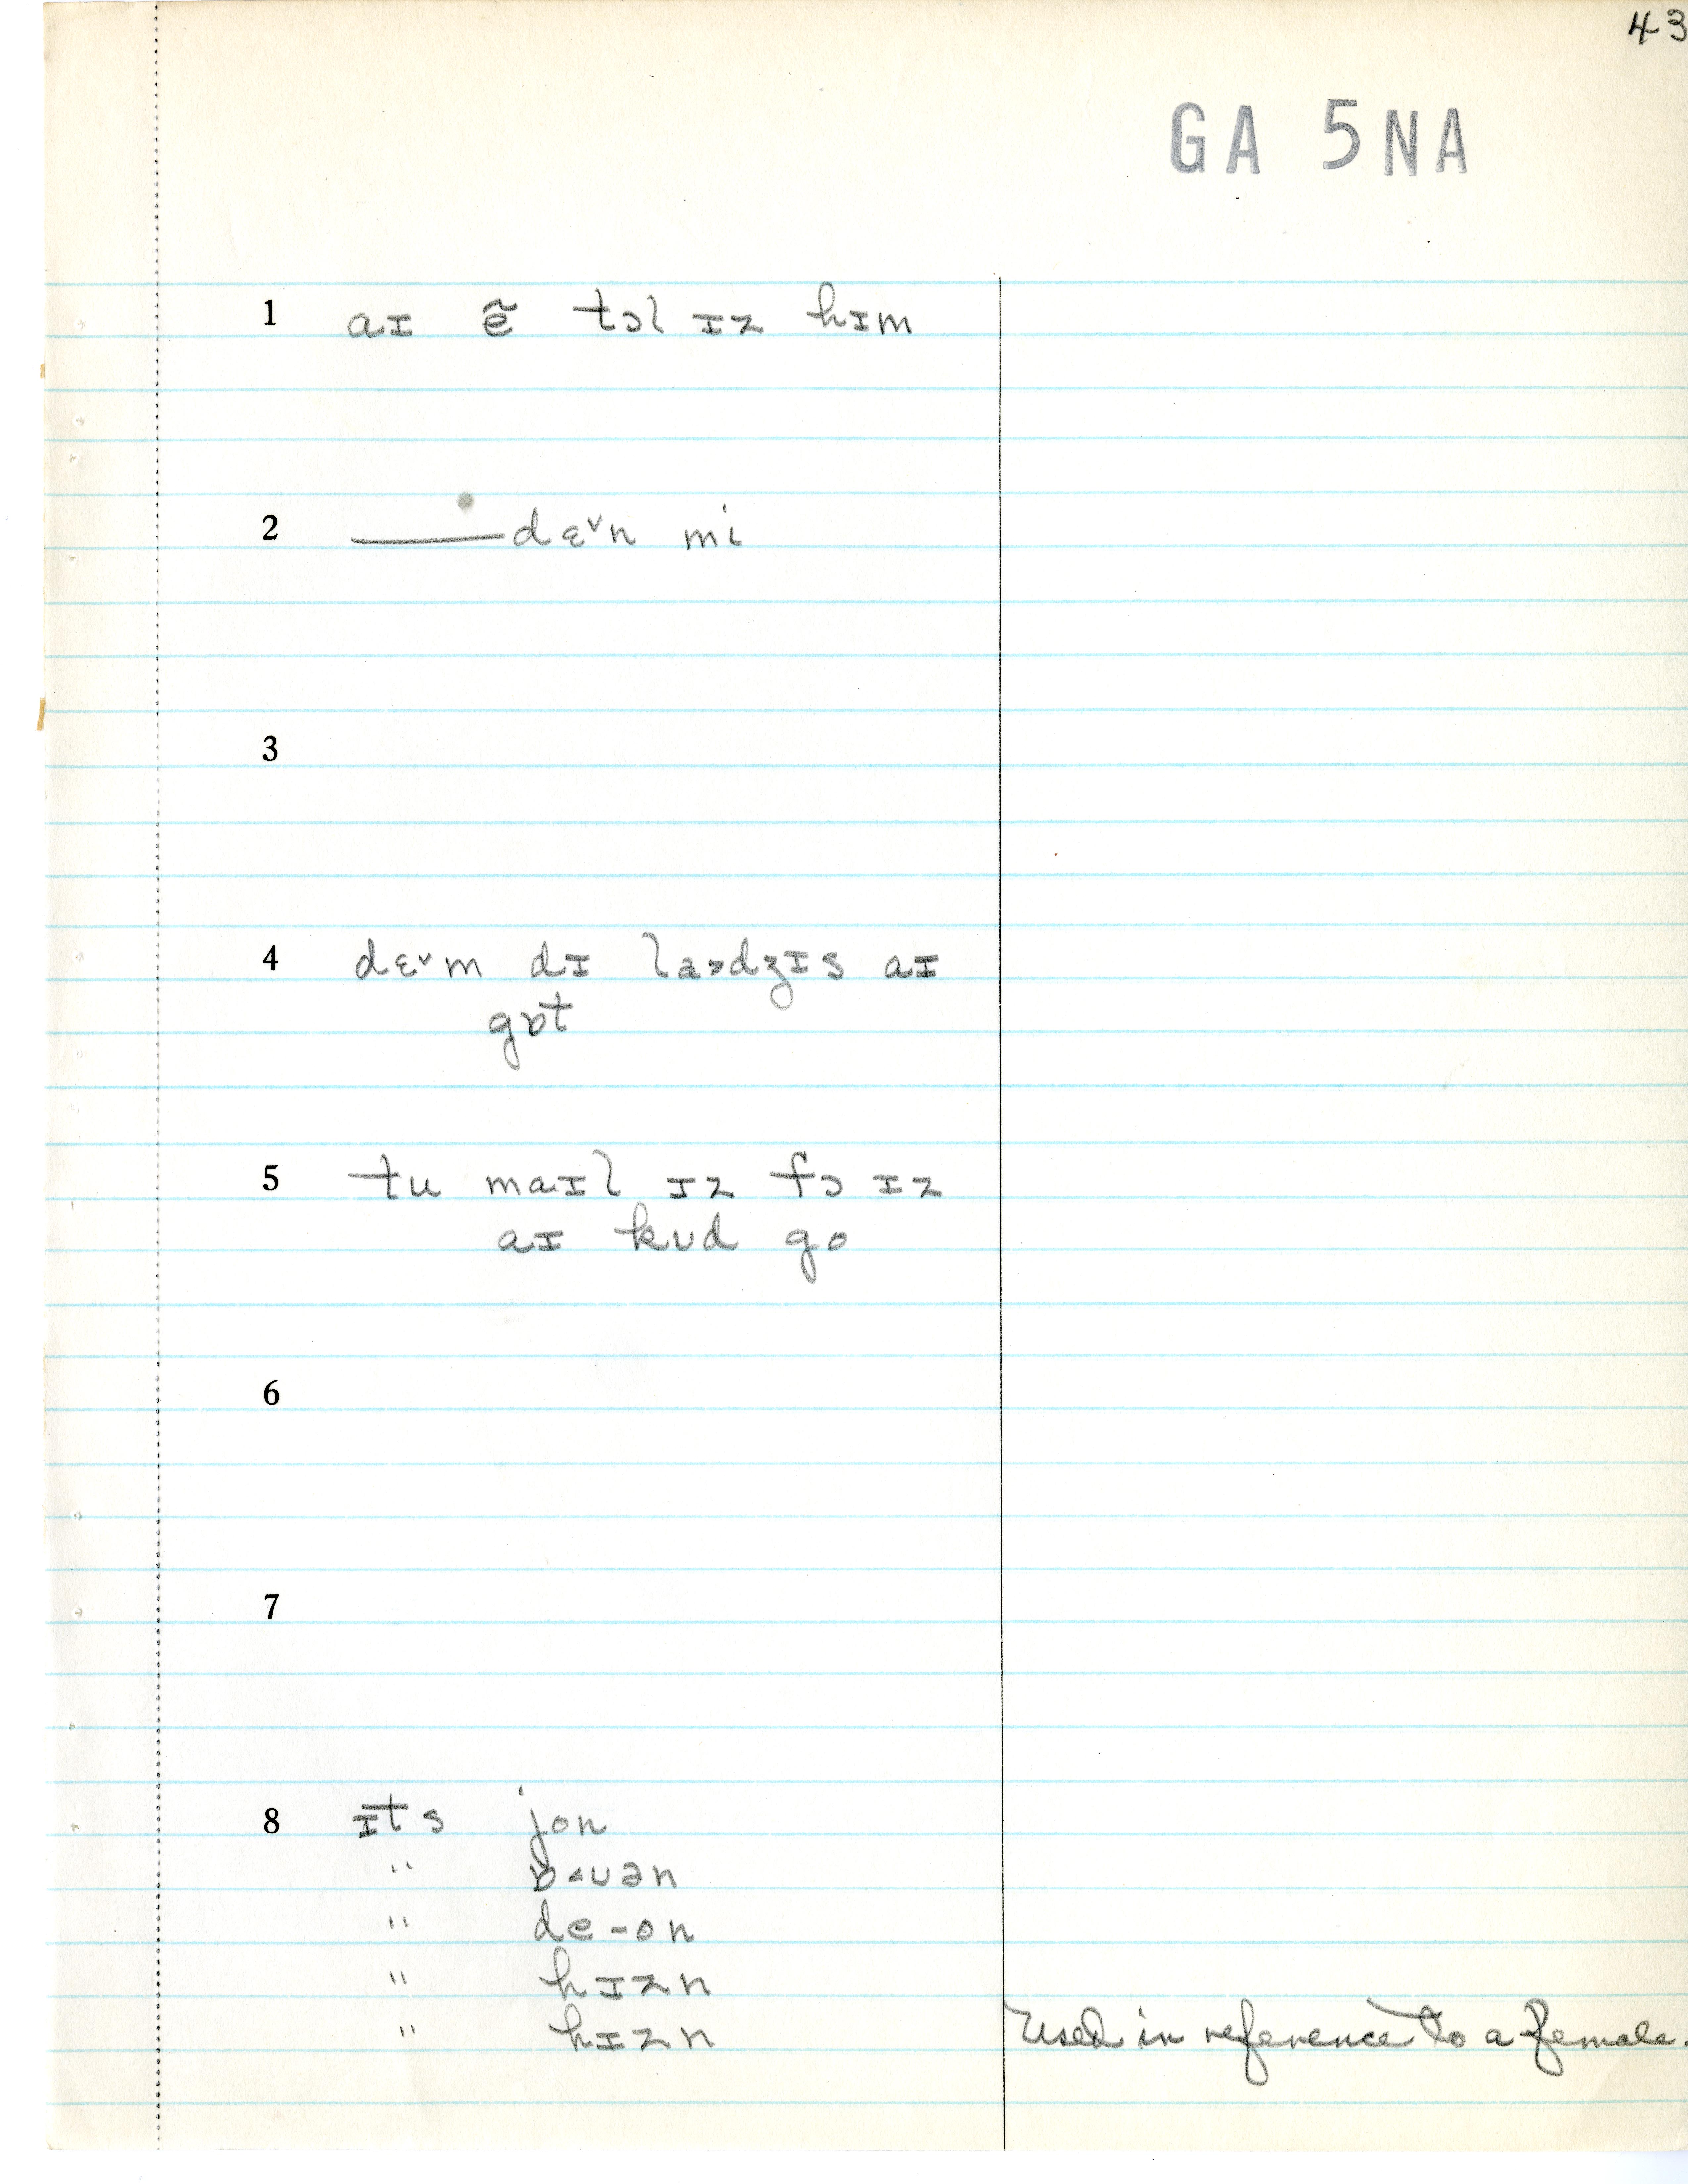 43
GA 5NA
1 aɪ ẽ tɔl ɪz hɪm
2 ——— dɛ˅n mi
3
4 dɛ˅m dɪ laɚdʒɪs aɪ
gɒt
5 tu maɪl ɪz fɔ ɪz
aɪ kʊd go
6
7
8 ɪts jon
" ɒ˂ʊən
" de-on
" hɪzn
" hɪzn Used in reference to a female.